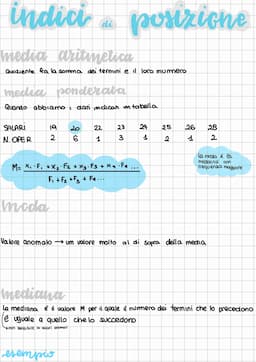 indici di posizione
media aritmetica
Quoziente fra la somma dei termini e il loro numero
media ponderata
Quando abbiamo i dati indicati in tabella
SALARI 19 20 22 23 24 25 26 28
N. OPER 2 6 1 3 1 2 1 2
M= X₁·F₁ + X₂·F₂ + X₃·F₃ + X₄·F₄ ...
F₁ + F₂ + F₃ + F₄ ...
la moda è 20
frequenza maggiore
moda
Valore anomalo → un valore molto al di sopra della media
mediana
la mediana è il valore M per il quale il numero dei termini che lo precedono
è uguale a quello che lo succedono
esempio